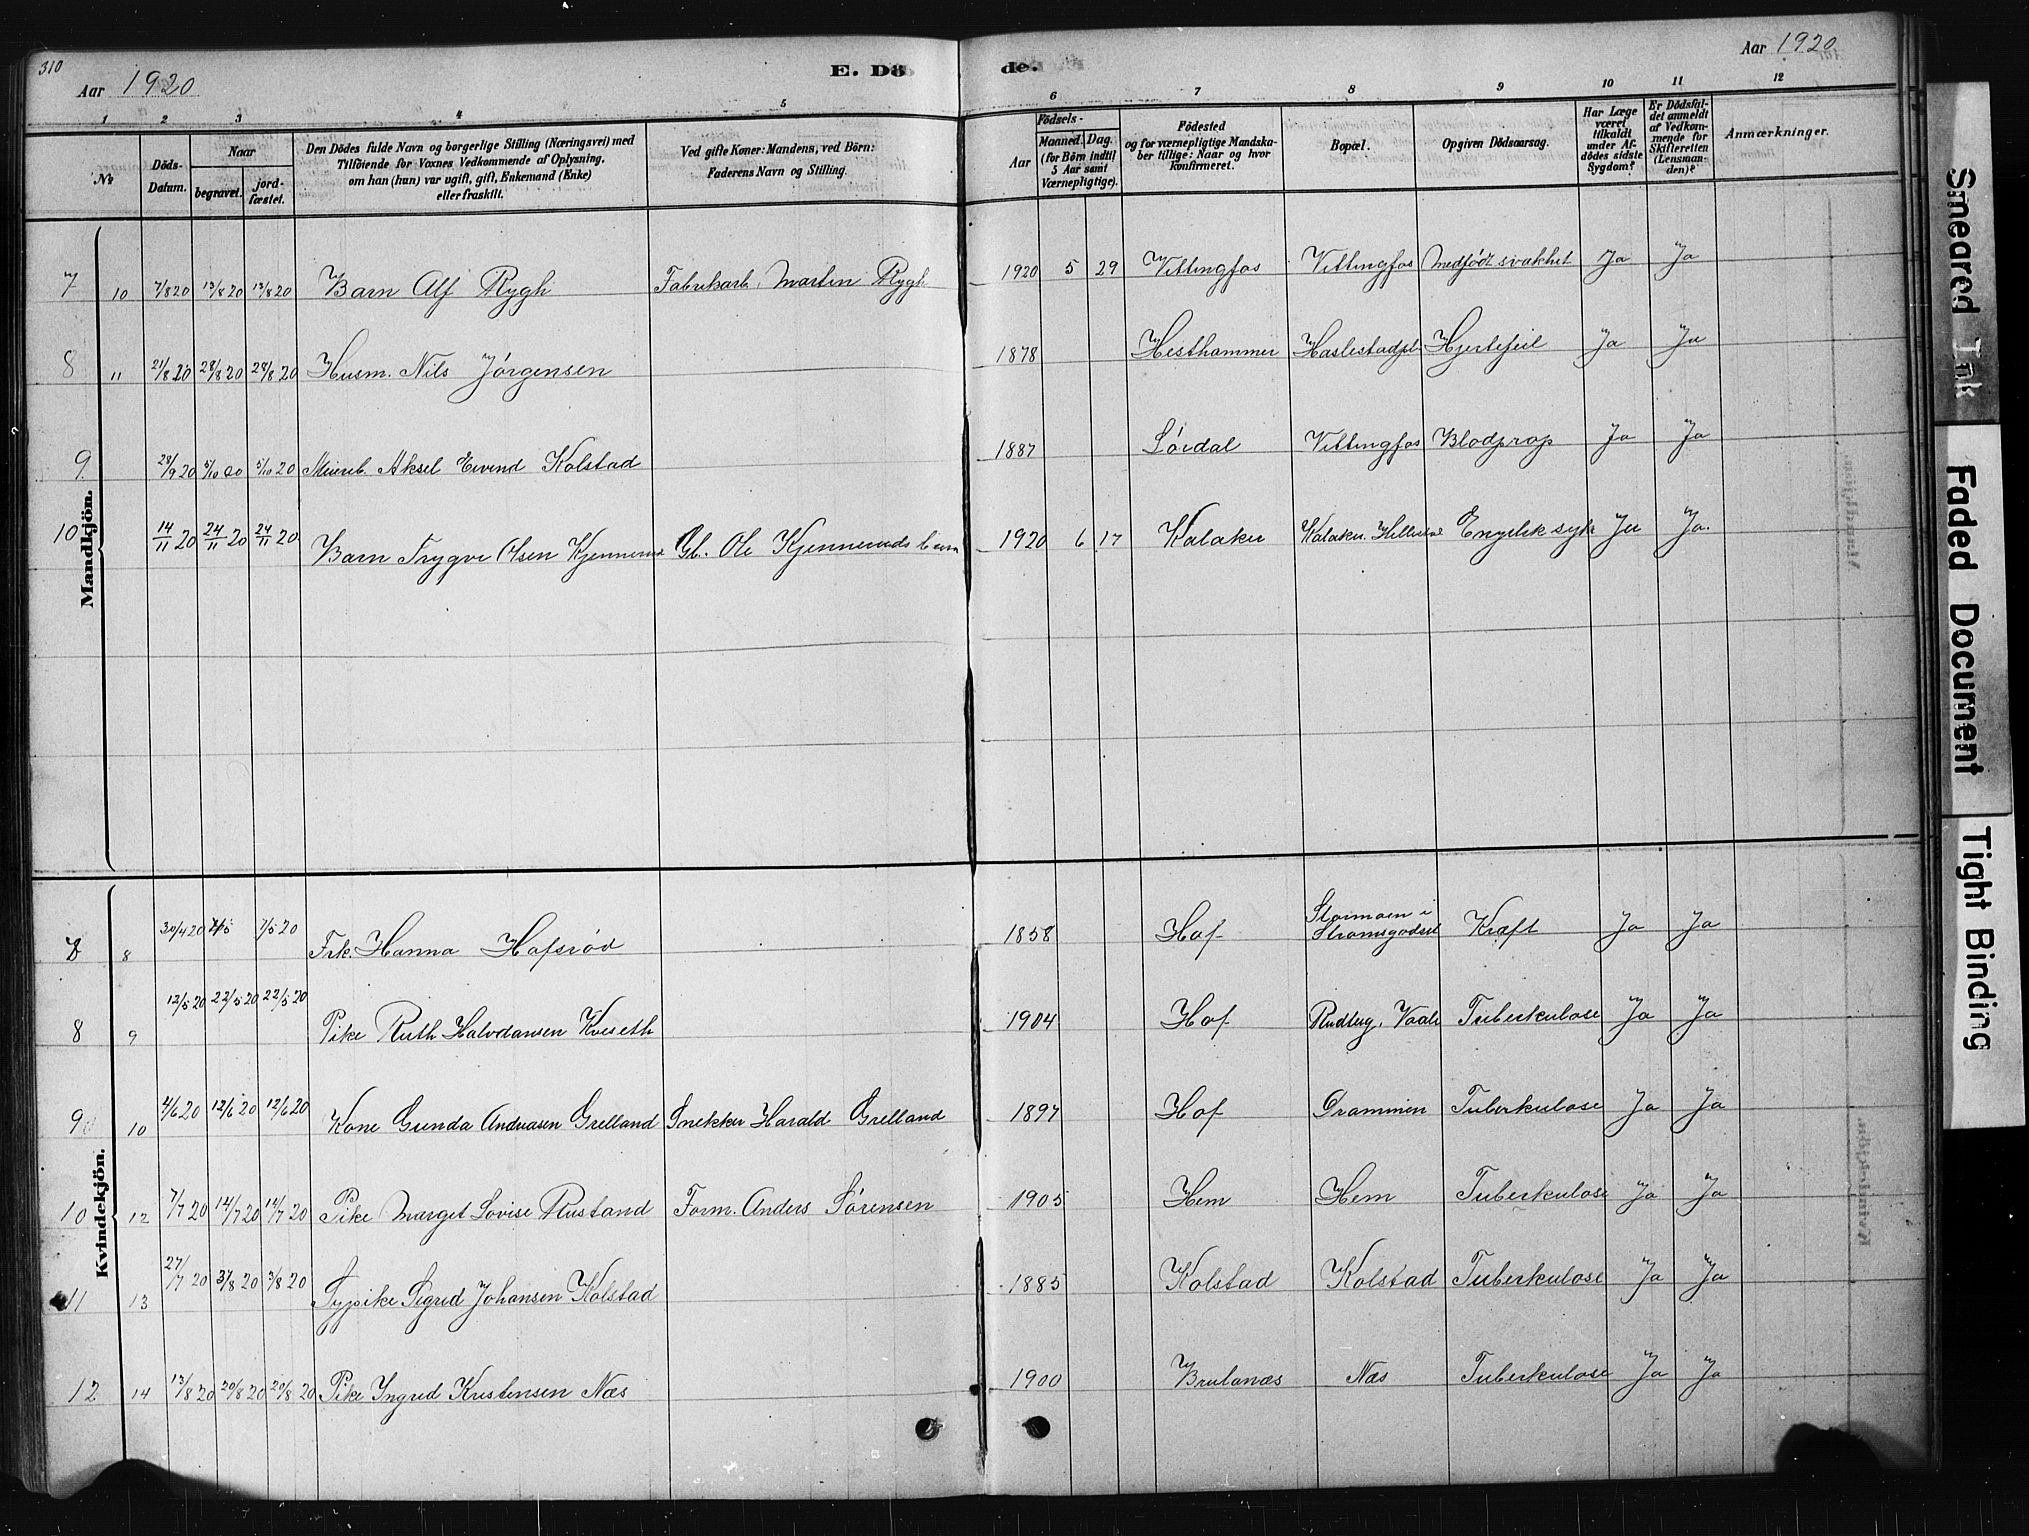 310
Aar 1920
E. Dö
de.
Aar 1920
1 2 3 4 5 6 7 8 9 10 11 12
№
Döds-Datum.
Naar
begravet.
jord-fæstet.
Den Dödes fulde Navn og borgerlige Stilling (Næringsvei) med
Tilföiende for Voxnes Vedkommende af Oplysning,
om han (hun) var ugift, gift, Enkemand (Enke)
eller fraskilt.
Ved gifte Koner: Mandens, ved Börn:
Faderens Navn og Stilling.
Födsels-
Aar
Maaned. Dag.
(for Börn indtil
5 Aar samt
Værnepligtige).
Födested
og for værnepligtige Mandska-
ber tillige: Naar og hvor
konfirmeret.
Bopæl.
Opgiven Dödsaarsag.
Har Læge
været
tilkaldt
under Af-
dödes sidste
Sygdom?
Er Dödsfal-
det anmeldt
af Vedkom-
mende for
Skifteretten
(Lensman-
den)?
Anmærkninger.
Mandkjön.
7 10 7/8 20 13/8 20 13/8 20 Barn Alf Rygh Fabrikarb. Martin Rygh 1920 5 29 Vittingfos Vittingfos Medfödt svakhet Ja Ja
8 11 21/8 20 28/8 20 28/8 20 Husm. Nils Jørgensen 1878 Hesthammer Haslestadpl. Hjertefeil Ja Ja
9. 28/9 20 5/10 20 5/10 20 Aksel Eivind Kolstad 1887 Söidal Vittingfos Blodprop Ja Ja
10 14/11 20 24/11 20 24/11 20 Barn Trygve Olsen Kjennerud Gb. Ole Kjenneruds barn 1920 6 17 Kalaker Kalaker. Engelsk syke Ja Ja.
Kvindekjön.
7 8 30/4 20 7/5 7/5 20 Frk. Hanna Hofsrød 1858 Hof Stormoen i
Strømsgodset Kræft Ja Ja
8 9 12/5 20 22/5 20 22/5 20 Pike Ruth Halvdansen Kveseth 1904 Hof Rudberg, Vaale Tuberkulose Ja Ja
9 10 4/6 20 12/6 20 12/6 20 Kone Gunda Andreasen Grelland Snekker Harald Grelland 1897 Hof Drammen Tuberkulose Ja Ja
10 12 7/7 20 14/7 20 14/7 20 Pike Marget Lovise Rustand Form. Anders Sørensen 1905 Hem Hem Tuberkulose Ja Ja
11 13 27/7 20 3/8 20 3/8 20 Sypike Sigrid Johansen Kolstad 1885 Kolstad Kolstad Tuberkulose Ja Ja
12 14 13/8 20 20/8 20 20/8 20 Pike Ingrid Kristensen Næs 1900 Brulanæs Næs Tuberkulose Ja Ja
Smeared Ink
Faded Document
Tight Binding